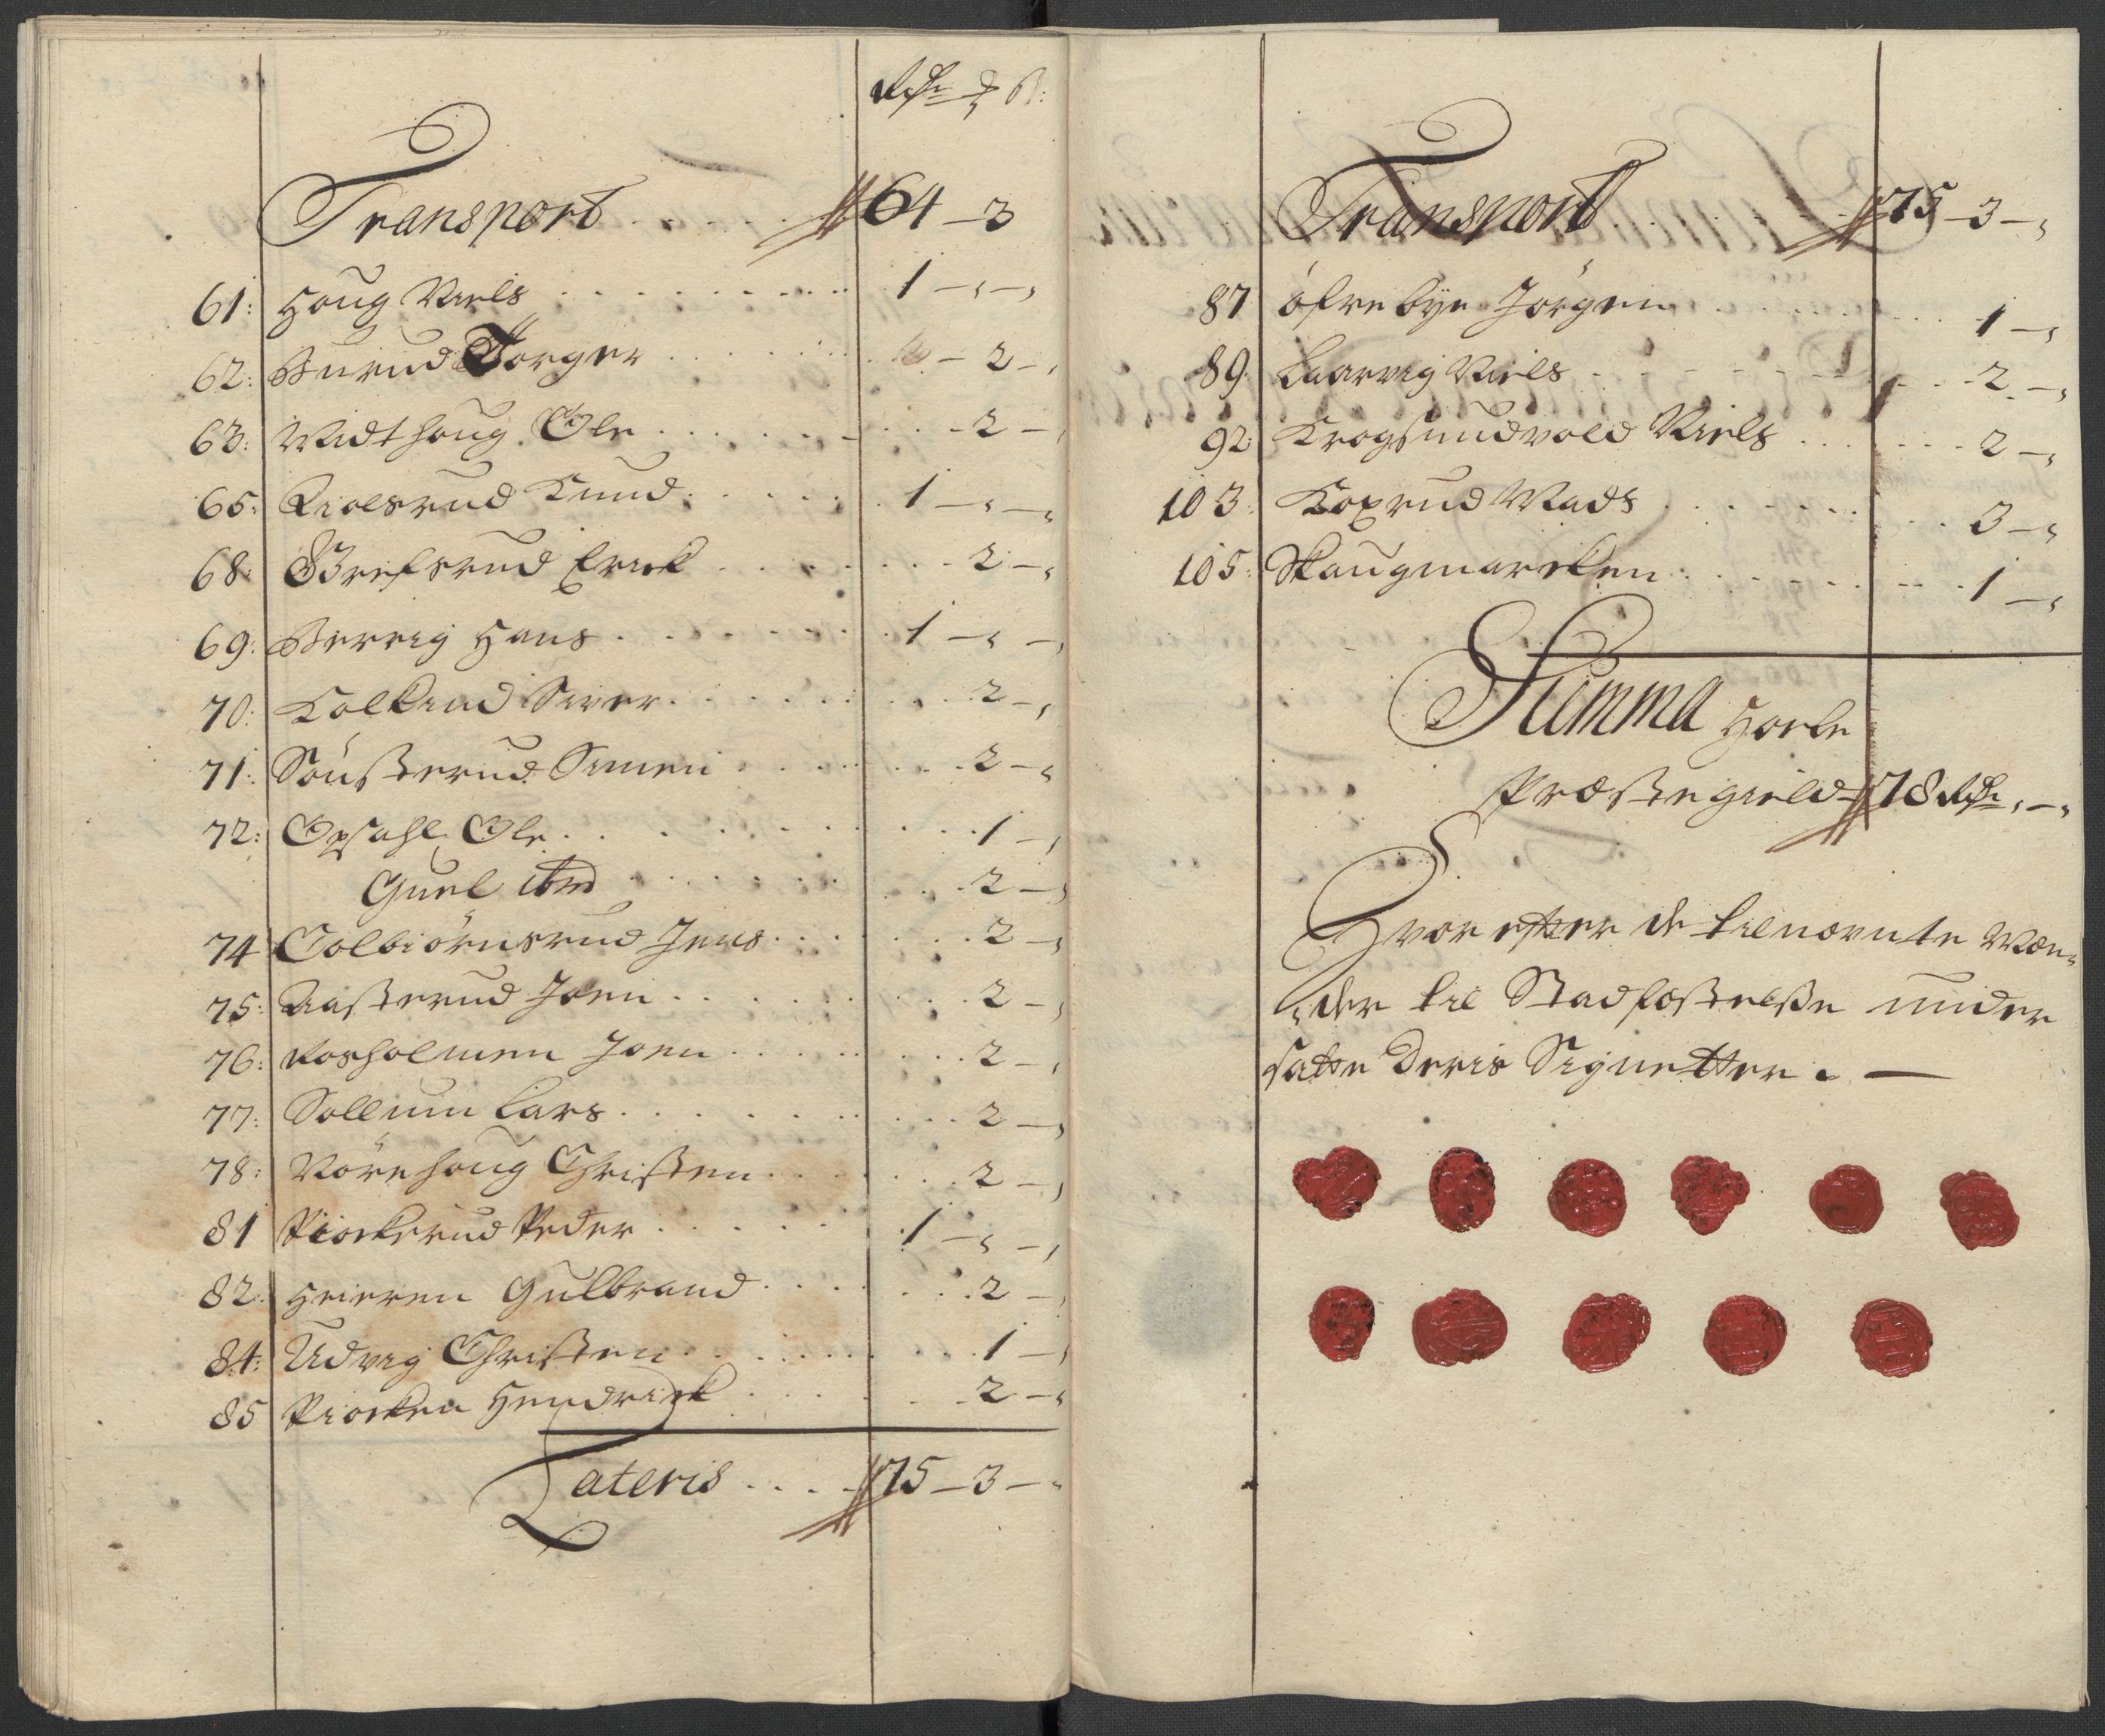 Rdr ß:
Transport 64 - 3
61: Houg Niels 1 - -
62: Burud Torger - 2 -
63: Midthoug Ole 2 -
65: Kiolsrud Knud 1 - -
68: Grefsrud Erick 2 -
69: Berrig Hans 1 - -
70: Kolkind Siver 2 -
71: Sönsterud Simen 2 -
72: Opsahl Ole 1 -
Guul ibid 2 -
74 Colbiörnsrud Jens 2 -
75: Aasterud Joen 2 -
76: Rosholmen Joen 2 -
77: Sollum Lars 2 -
78: Mörchoug Christen 2 -
81 Piockerud Peder 1 - -
82: Heieren Gulbrand 2 -
84: Udvig Christen 1 -
85 Piocken Hendrick 2 -
Lateris 75 - 3 -
Transport 75 - 3 -
87 öfrebye Jörgen 1 -
89 Laarvig Niels 2 -
92: Krogsundvold Niels 2 -
103: Koxrud Mads 3 -
105: Skougmarcken 1 -
Summa Hoele
Præstegield 78 Rdr - -
Hvor efter de bilnævnte Mæn-
der til Stadfæstelße under
satte Deris Signetter. -